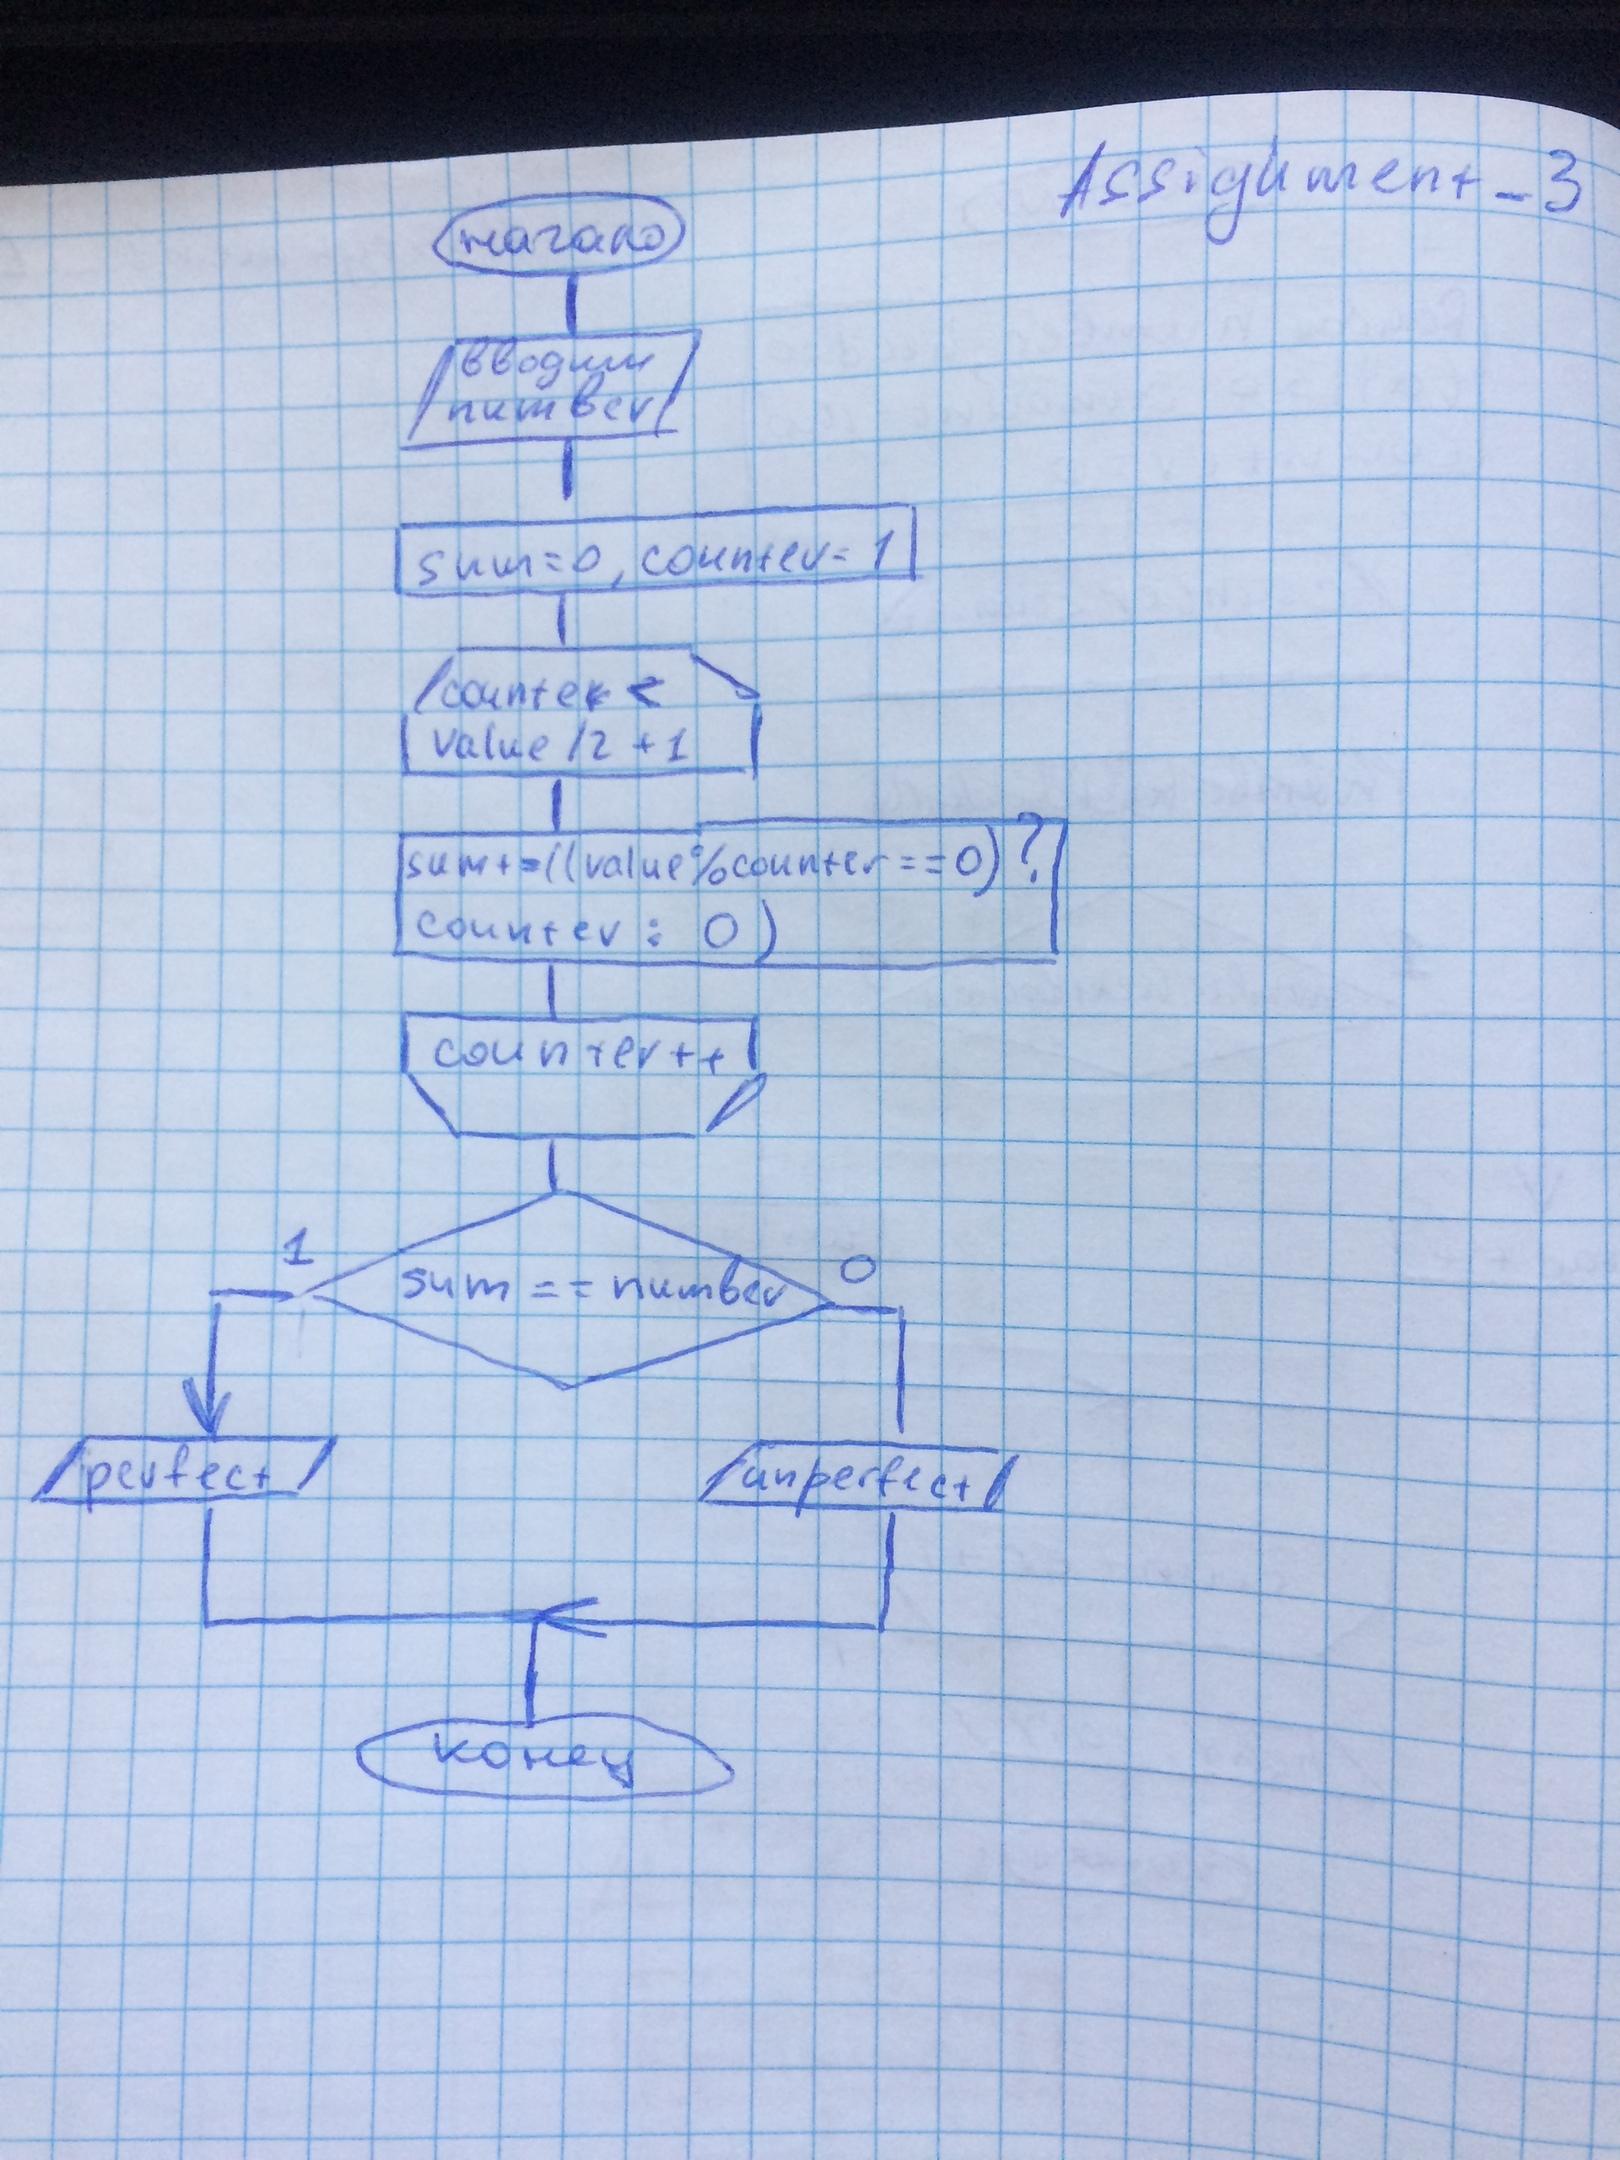 Assignment_3
начало
вводим
number
sum=0, counter=1
counter <
value/2+1
sum+=((value%counter==0)?
counter : 0)
counter++
1
sum == number
0
perfect
unperfect
конец